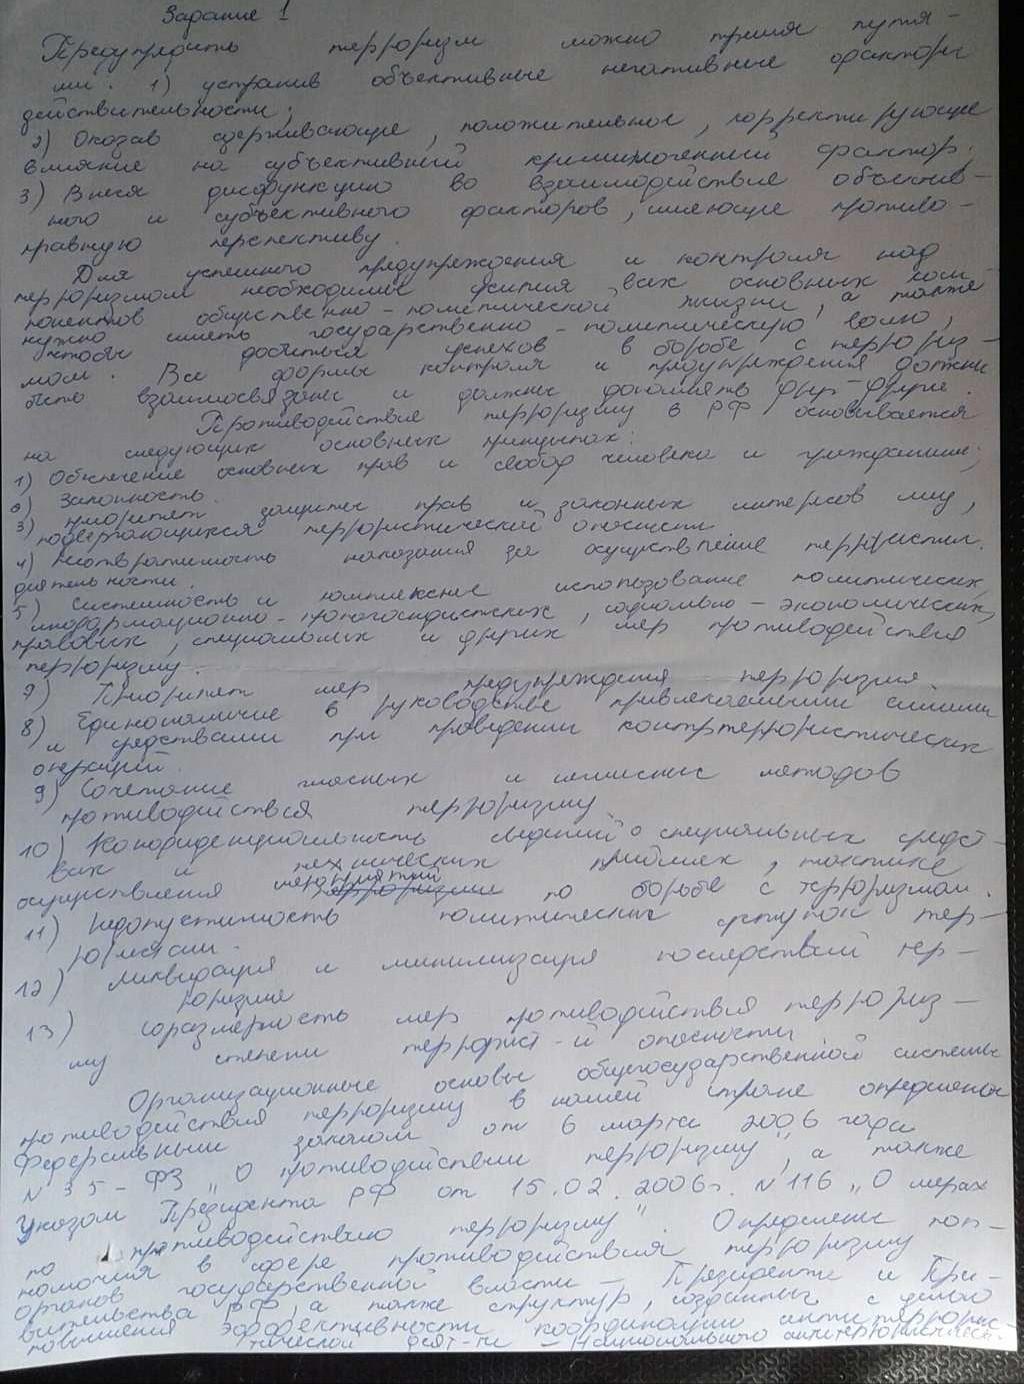 Задание 1
Предупредить терроризм можно тремя путя-
ми: 1) устранив объективные негативные факторы
действительности;
2) Оказав сдерживающее, положительное, корректирующее
влияние на субъективный криминогенный фактор;
3) Внеся дисфункцию во взаимодействие объектив-
ного и субъективного факторов, имеющие противо-
правную перспективу.
Для успешного предупреждения и контроля над
терроризмом необходимы усилия всех основных ком-
понентов общественно-политической жизни, а также
нужно иметь государственно-политическую волю,
чтобы добиться успехов в борьбе с террориз-
мом. Все формы контроля и предупреждения должны
быть взаимосвязаны и должны дополнять друг-друга.
Противодействие терроризму в РФ основывается
на следующих основных принципах:
1) Обеспечение основных прав и свобод человека и гражданина;
2) Законность.
3) приоритет защиты прав и законных интересов лиц,
подвергающихся террористической опасности
4) Неотвратимость наказания за осуществление террористич.
деятельности.
5) Системность и комплексное использование политических,
информационно-пропагандистских, социально-экономических,
правовых, специальных и других мер противодействия
терроризму.
7) Приоритет мер предупреждения терроризма
8) Единоначалие в руководстве привлекаемыми силами
и средствами при проведении контртеррористических
операций.
9) Сочетание гласных и негласных методов
противодействия терроризму
10) Конфиденциальность сведений о специальных средст-
вах и технических приёмах, тактике
осуществления мероприятий по борьбе с терроризмом.
11) Недопустимость политических уступок тер-
рористам.
12) ликвидация и минимизация последствий тер-
роризма
13) соразмерность мер противодействия террориз-
му степени террорист-й опасности
Организационные основы общегосударственной системы
противодействия терроризму в нашей стране определены
Федеральным законом от 6 марта 2006 года
№ 35-ФЗ „О противодействии терроризму", а также
Указом Президента РФ от 15.02.2006г. №116 „О мерах
по противодействию терроризму". Определены пол-
номочия в сфере противодействия терроризму
органов государственной власти - Президента и Пра-
вительства РФ, а также структур, созданных с целью
повышения эффективности координации антитеррорис-
тической деят-ти - Национального антитеррористичес-